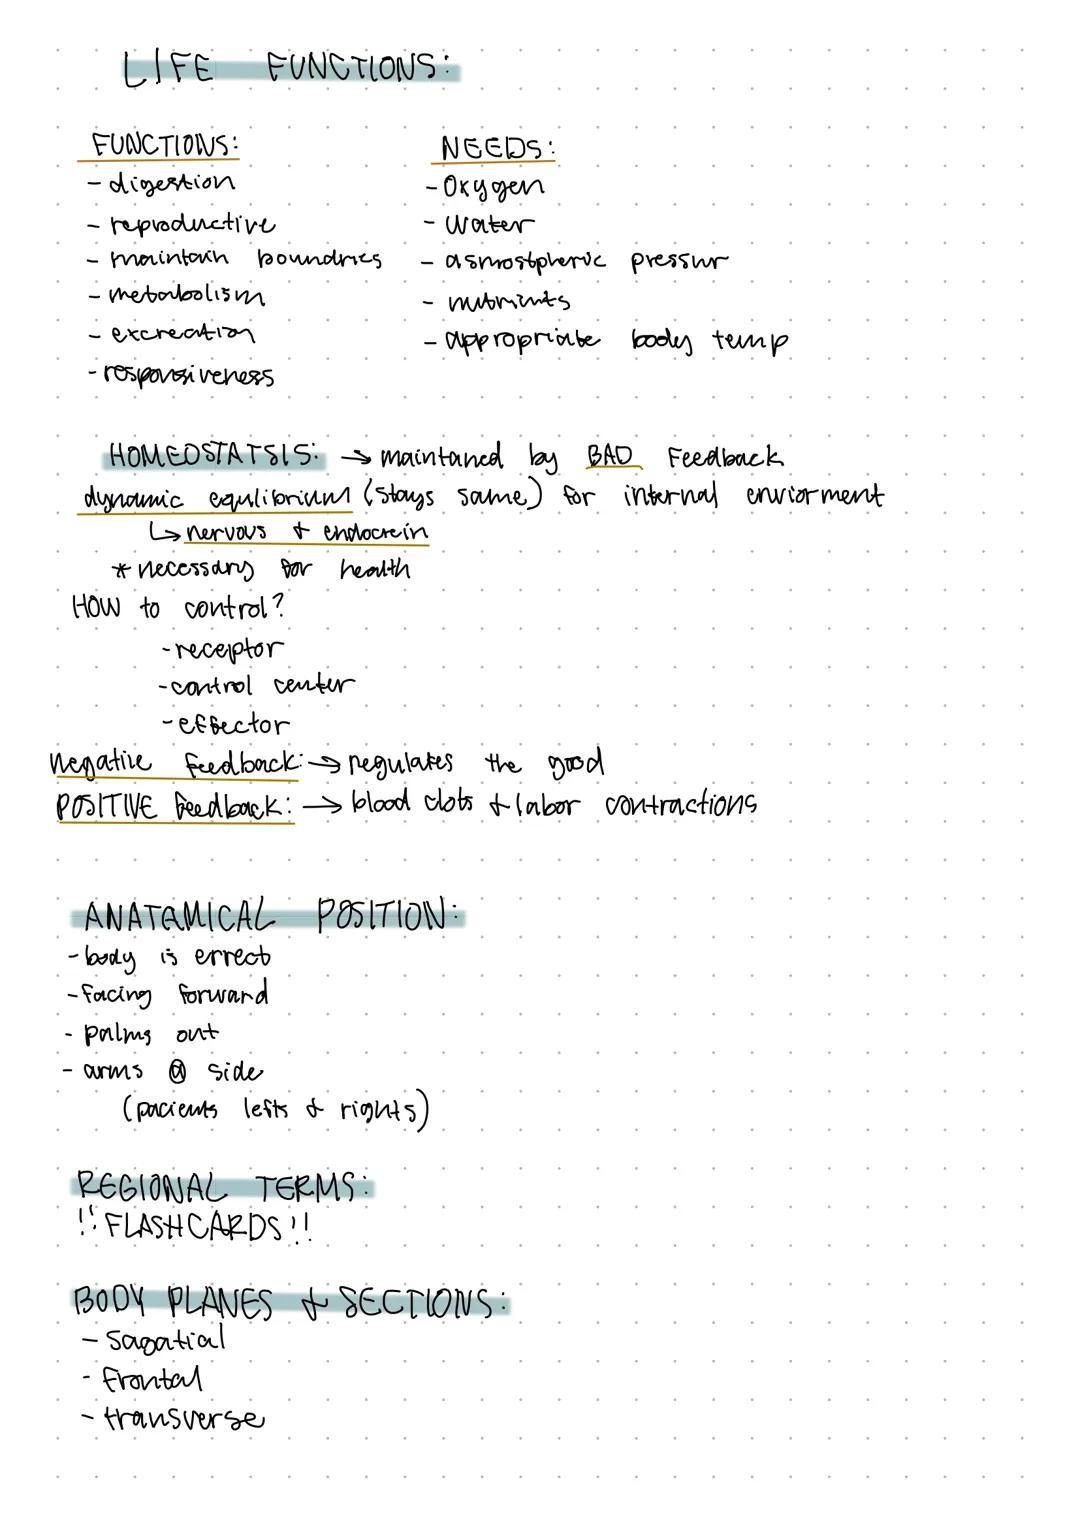 LIFE FUNCTIONS:
FUNCTIONS:
- digestion
- reproductive
- maintain boundries
- metabolism
- excreation
- responsiveness
NEEDS:
- Oxygen
- Water
- asmostpheric pressur
- nutrients
- appropriate body temp
HOMEOSTATSIS: → maintained by BAD Feedback
dynamic equlibrium (stays same) for internal enviorment
↳ nervous + endocrein
* necessary for health
HOW to control?
- receptor
- control center
- effector
negative feedback: → regulates the good
POSITIVE feedback: → blood clots + labor contractions
ANATAMICAL POSITION:
- body is errect
- facing forward
- palms out
- arms @ side
(pacients lefts & rights)
REGIONAL TERMS:
!! FLASHCARDS !!
BODY PLANES & SECTIONS:
- Sagatial
- Frontal
- transverse